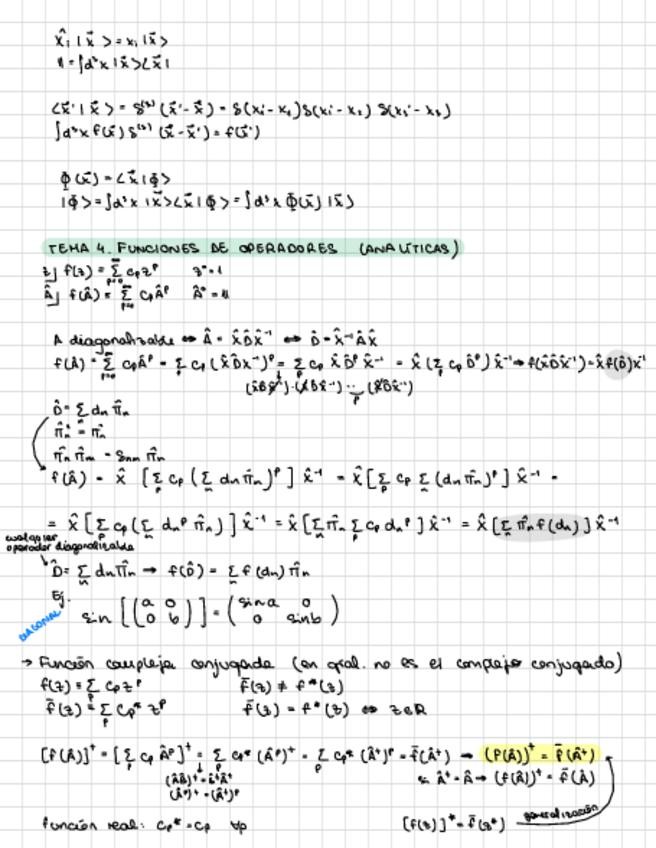 x̂ᵢ |x⃗> = xᵢ |x⃗>
𝟙 = ∫d³x |x⃗><x⃗|
<x⃗'|x⃗> = δ⁽³⁾(x⃗'-x⃗) = δ(x₁'-x₁)δ(x₂'-x₂) δ(x₃'-x₃)
∫d³x f(x⃗) δ⁽³⁾(x⃗-x⃗') = f(x⃗')
Φ(x⃗) = <x⃗|Φ>
|Φ> = ∫d³x |x⃗><x⃗|Φ> = ∫d³x Φ(x⃗) |x⃗>
TEMA 4. FUNCIONES DE OPERADORES (ANALÍTICAS)
z] f(z) = Σ cₚ zᵖ z⁰ = 1
Â] f(Â) = Σ cₚ Âᵖ Â⁰ = 𝟙
A diagonalizable ⇔ Â = X̂D̂X̂⁻¹ ⇔ D̂ = X̂⁻¹ÂX̂
f(Â) = Σ cₚÂᵖ = Σ cₚ (X̂D̂X̂⁻¹)ᵖ = Σ cₚ X̂D̂ᵖX̂⁻¹ = X̂(Σ cₚ D̂ᵖ)X̂⁻¹ → f(X̂D̂X̂⁻¹) = X̂f(D̂)X̂⁻¹
(X̂D̂X̂⁻¹)·(X̂D̂X̂⁻¹) ·.. (X̂D̂X̂⁻¹)
D̂ = Σ dₙ π̂ₙ
π̂ₙ² = π̂ₙ
π̂ₙ π̂ₘ = δₙₘ π̂ₙ
f(Â) = X̂ [Σ cₚ (Σ dₙ π̂ₙ)ᵖ] X̂⁻¹ = X̂ [Σ cₚ Σ (dₙ π̂ₙ)ᵖ] X̂⁻¹ =
= X̂ [Σ cₚ (Σ dₙᵖ π̂ₙ)] X̂⁻¹ = X̂ [Σ π̂ₙ Σ cₚ dₙᵖ] X̂⁻¹ = X̂ [Σ π̂ₙ f(dₙ)] X̂⁻¹
cualquier
operador diagonalizable
D̂ = Σ dₙπ̂ₙ → f(D̂) = Σ f(dₙ) π̂ₙ
Ej.
DIAGONAL
sin [(a 0 / 0 b)] = (sin a 0 / 0 sin b)
→ Función compleja conjugada (en gral. no es el complejo conjugado)
f(z) = Σ cₚ zᵖ f̄(z) ≠ f*(z)
f̄(z) = Σ cₚ* zᵖ f̄(z) = f*(z) ⇔ z∈ℝ
[f(Â)]⁺ = [Σ cₚ Âᵖ]⁺ = Σ cₚ* (Âᵖ)⁺ = Σ cₚ* (Â⁺)ᵖ = f̄(Â⁺) → (f(Â))⁺ = f̄(Â⁺)
(ÂB̂)⁺ = B̂⁺Â⁺
(Âᵖ)⁺ = (Â⁺)ᵖ
Â⁺ = Â → (f(Â))⁺ = f̄(Â)
generalización
función real: cₚ* = cₚ ∀p [f(z)]* = f̄(z*)